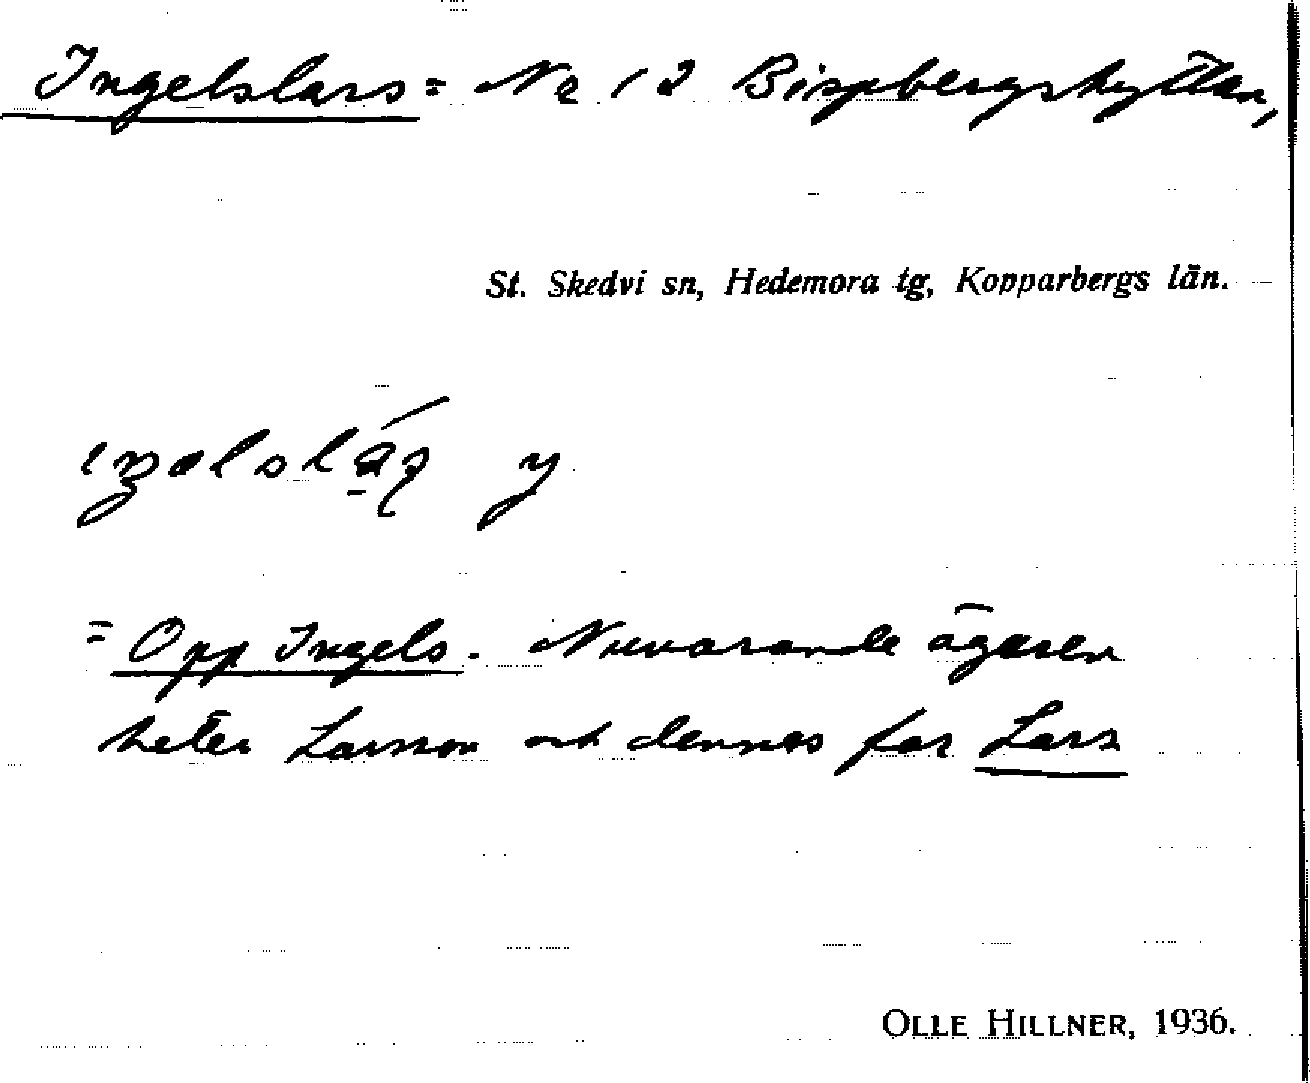 Ingelslars = Nr 12 Bispbergshyttan,
St. Skedvi sn, Hedemora tg, Kopparbergs län.
= Opp Ingels. Nuvarande ägaren
heter Larsson och dennes far Lars
OLLE HILLNER, 1936.